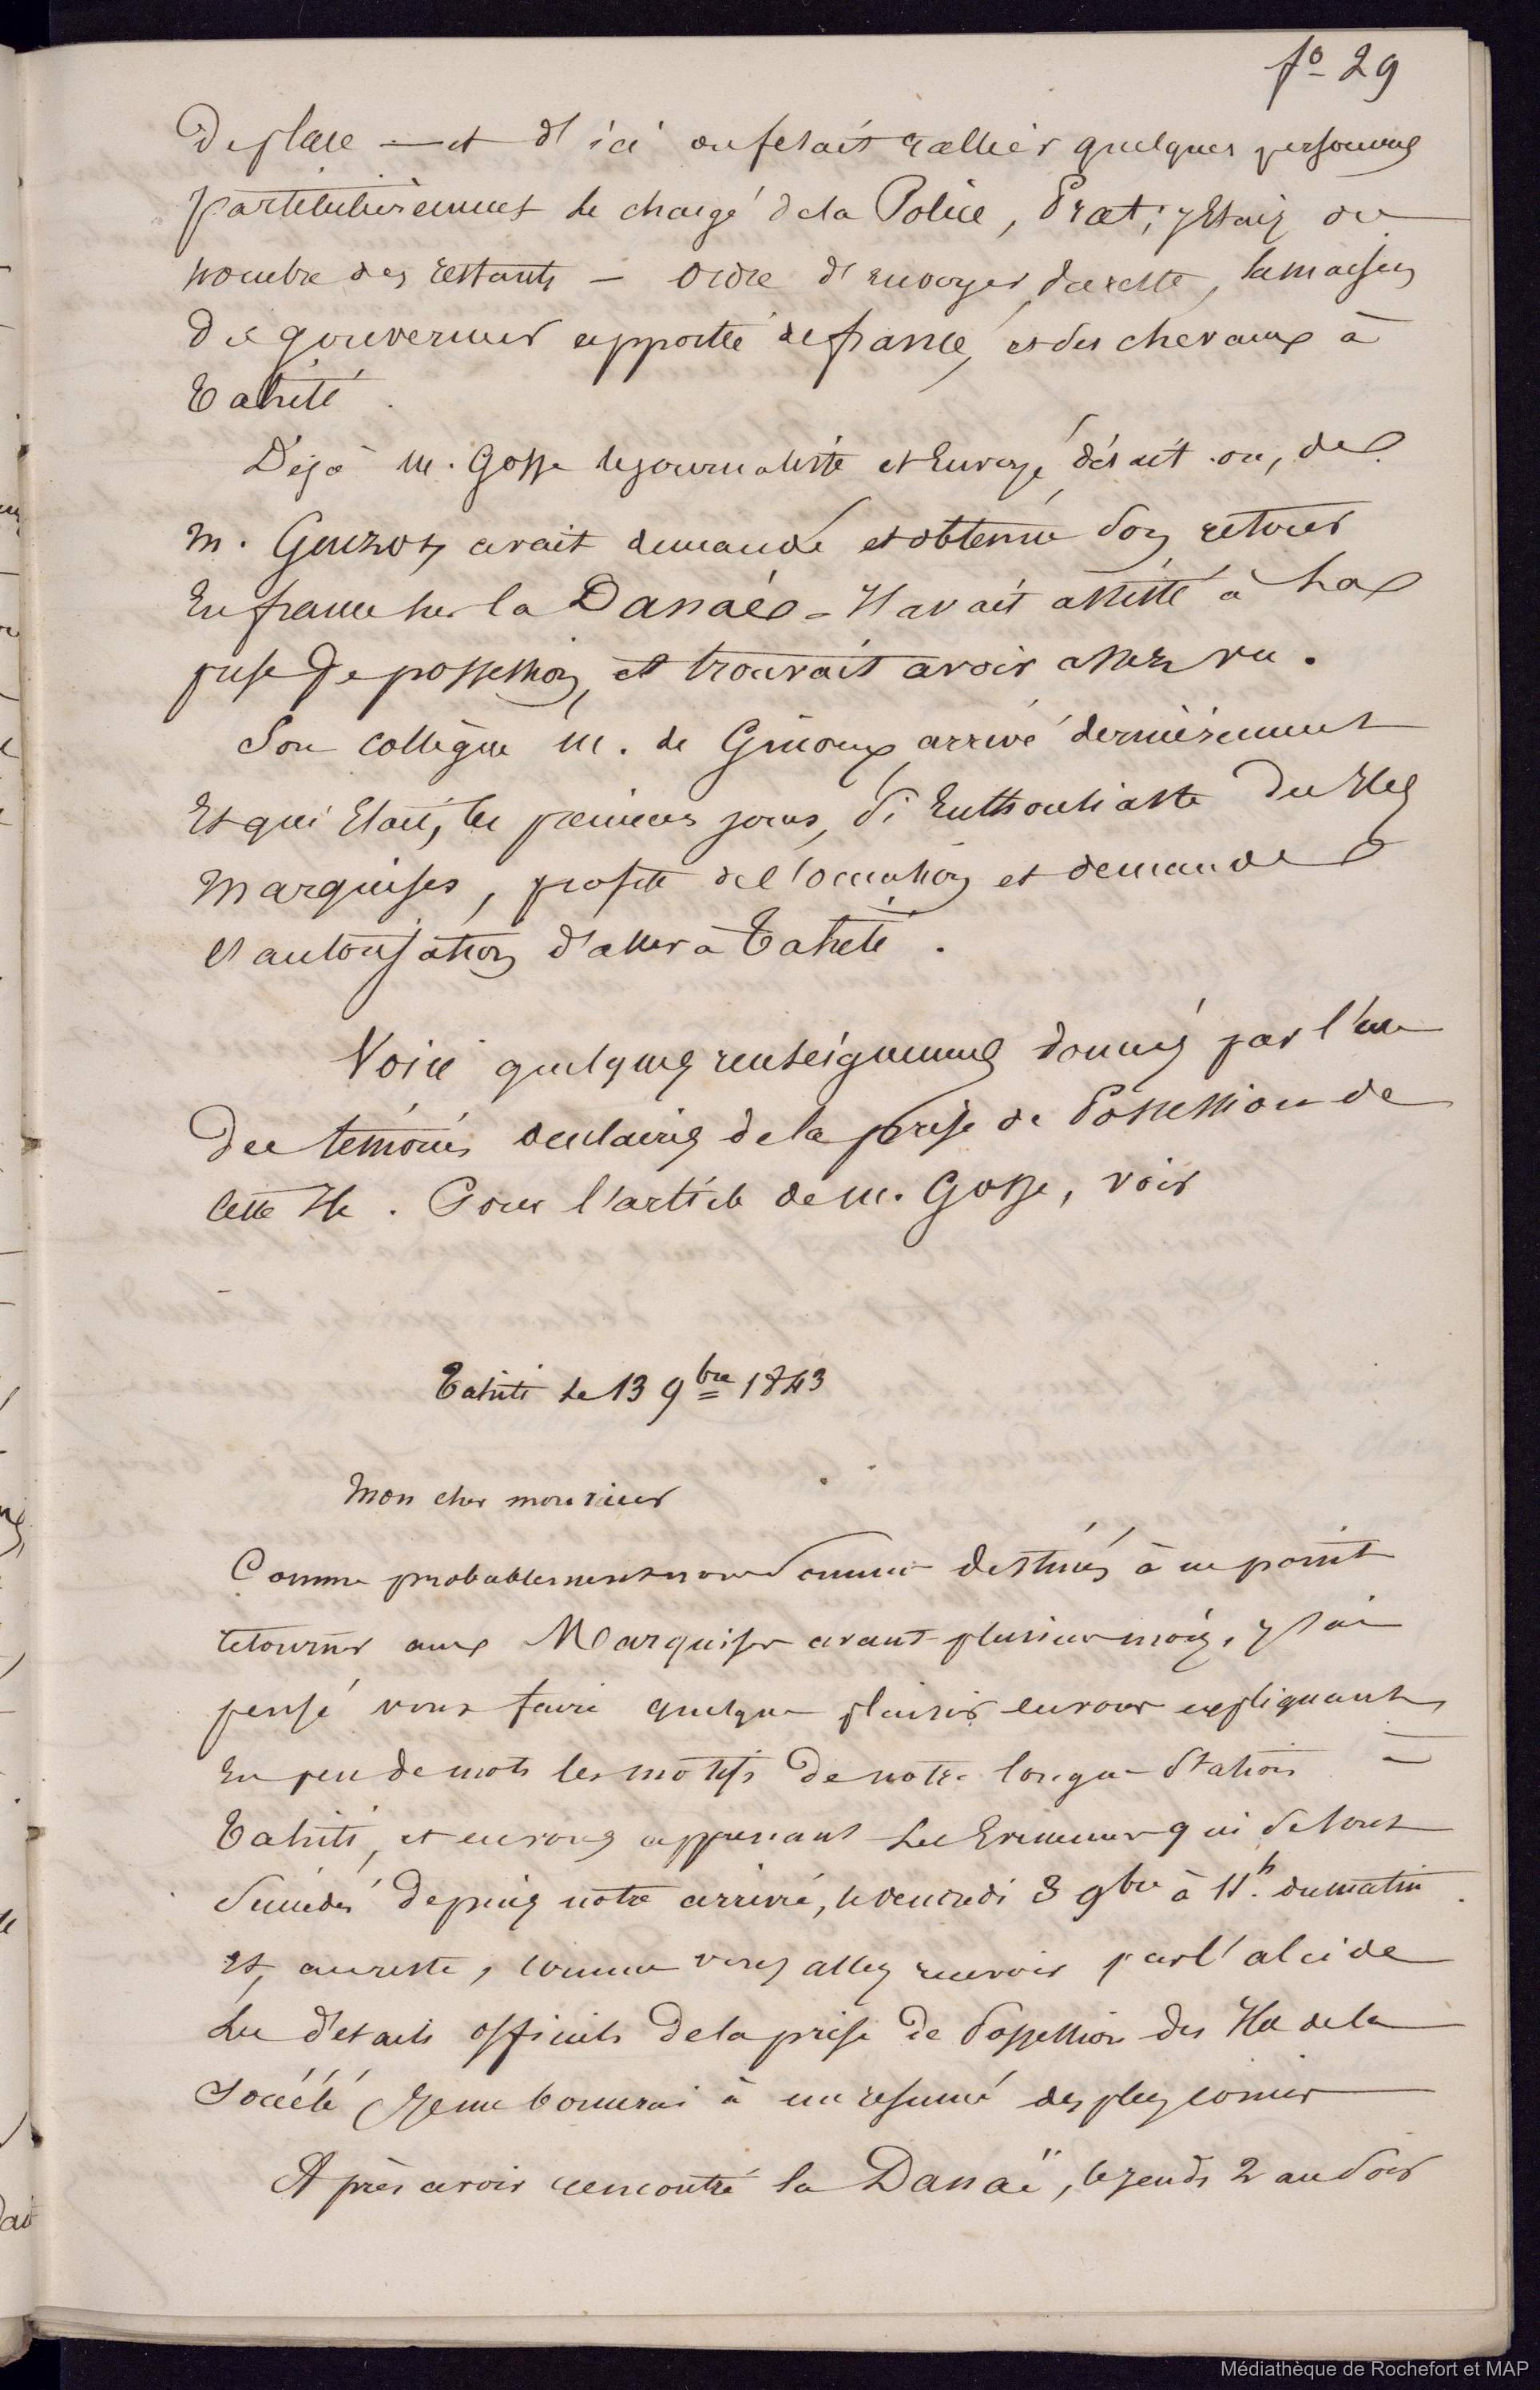 fo 29
De place — et d'ici on ferait rallier quelques personnes
particulièrement le chargé de la Police, Prat; j'étais du
nombre des restants — Ordre d'envoyer, du reste, la maison
du gouverneur apportée de france, et des chevaux à
Tahiti.
Déjà M. Gosse le journaliste et Envoyé disait-on, de
M. Guizot avait demandé et obtenu son retour
En france sur la Danaé - Il avait assisté à La
prise de possession, et trouvait avoir assez vu.
Son collègue M. de Ginoux, arrivé dernièrement
Et qui était, les premiers jours, si Enthousiaste des Iles
Marquises, profite de l'occasion et demande
l'autorisation d'aller à Tahiti.
Voici quelques renseignemens donnés par l'un
Des témoins oculaires de la prise de Possession de
cette Ile. Pour l'article de M. Gosse, voir
Tahiti le 13 9bre 1843
Mon cher monsieur
Comme probablement nous Sommes destinés à ne point
retourner aux Marquises avant plusieurs mois, j'ai
pensé vous faire quelque plaisir en vous expliquant
En peu de mots les motifs De notre longue Station à
Tahiti, et en vous apprenant Les Evénemens qui Se sont
Succédés depuis notre arrivée, le vendredi 3 9bre à 11h. du matin.
Et, au reste, comme vous allez recevoir par l'alcide
Les détails officiels De la prise De Possession des Iles de la
Société, Je me bornerai à un resumé des plus concis
Après avoir rencontré la Danaë, le jeudi 2 au Soir
Médiathèque de Rochefort et MAP